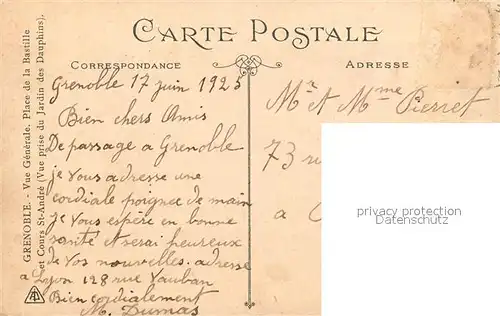 CARTE POSTALE
CORRESPONDANCE
ADRESSE
GRENOBLE. - Vue Générale. Place de la Bastille
et Cours St-André (Vue prise du Jardin des Dauphins).
Grenoble 17 juin 1925
Bien chers Amis
De passage a Grenoble
je Vous adresse une
cordiale poignee de main
je Vous espère en bonne
santé et serai heureux
de Vos nouvelles. adresse
a Lyon 128 rue Vauban
Bien cordialement
M. Dumas
Mr et Mme Pierret
73 ru
a
privacy protection
Datenschutz